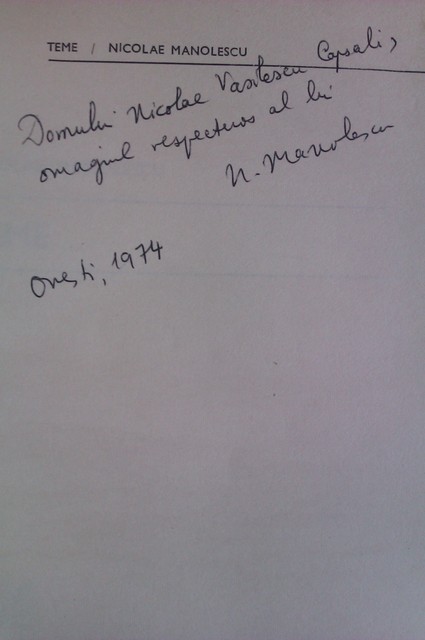 TEME / NICOLAE MANOLESCU
Domnului Nicolae Vasilescu Capsali,
omagiul respectuos al lui
N. Manolescu
Onești, 1974